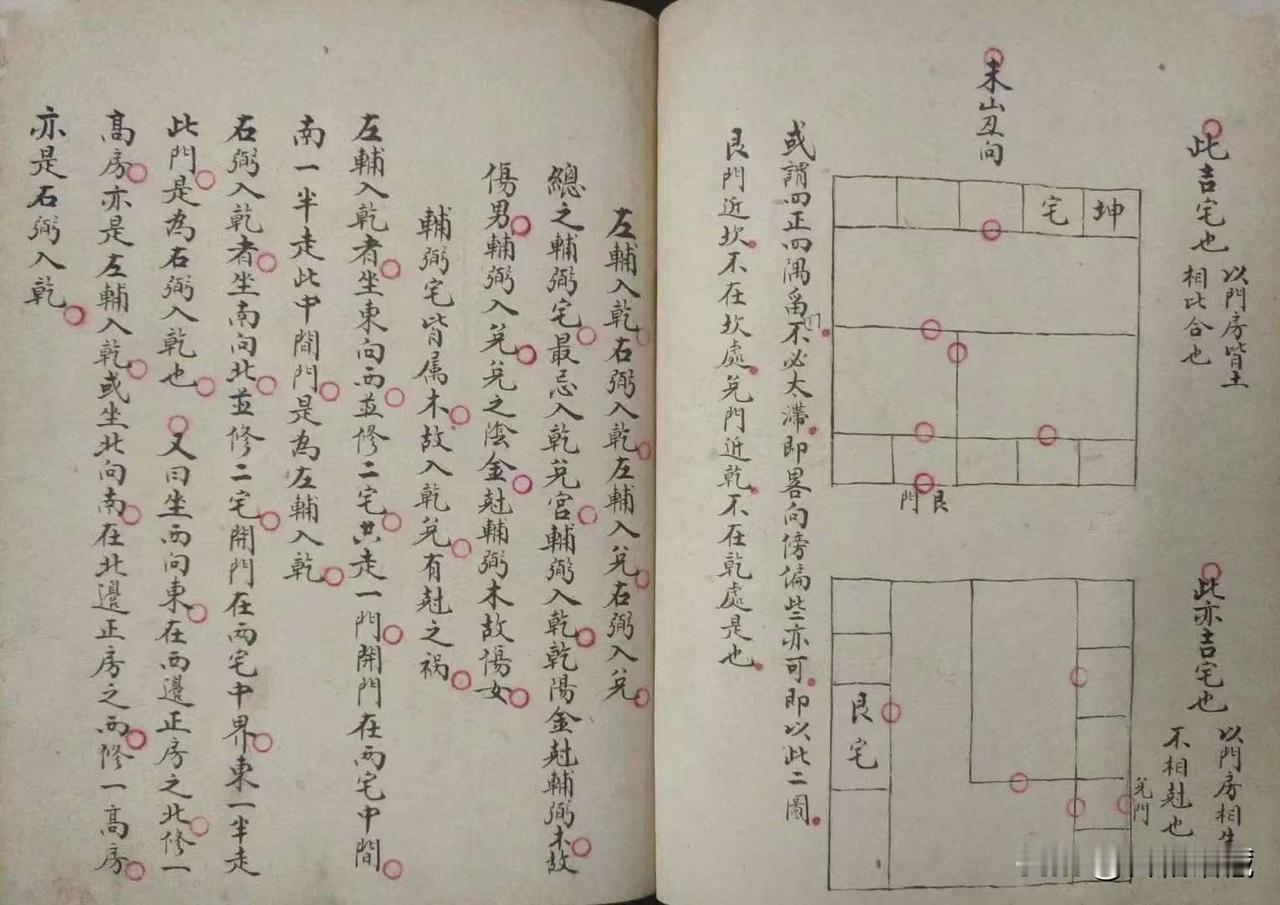 此吉宅也
以門房皆土
相比合也
未山丑向
坤
宅
艮
門
此亦吉宅也
以門房相生
不相尅也
艮宅
兌門
或謂四正四隅門不必太滯即畧向傍偏些亦可即以此二圖
艮門近坎不在坎處兌門近乾不在乾處是也
左輔入乾右弼入乾左輔入兌右弼入兌
總之輔弼宅最忌入乾兌宮輔弼入乾乾陽金尅輔弼木故
傷男輔弼入兌兌之陰金尅輔弼木故傷女
輔弼宅皆属木故入乾兌有尅之禍
左輔入乾者坐東向西並修二宅共走一門開門在兩宅中間
南一半走此中間門是為左輔入乾
右弼入乾者坐南向北並修二宅開門在兩宅中界東一半走
此門是為右弼入乾也又曰坐西向東在西邊正房之北修一
高房亦是左輔入乾或坐北向南在北邊正房之西修一高房
亦是右弼入乾